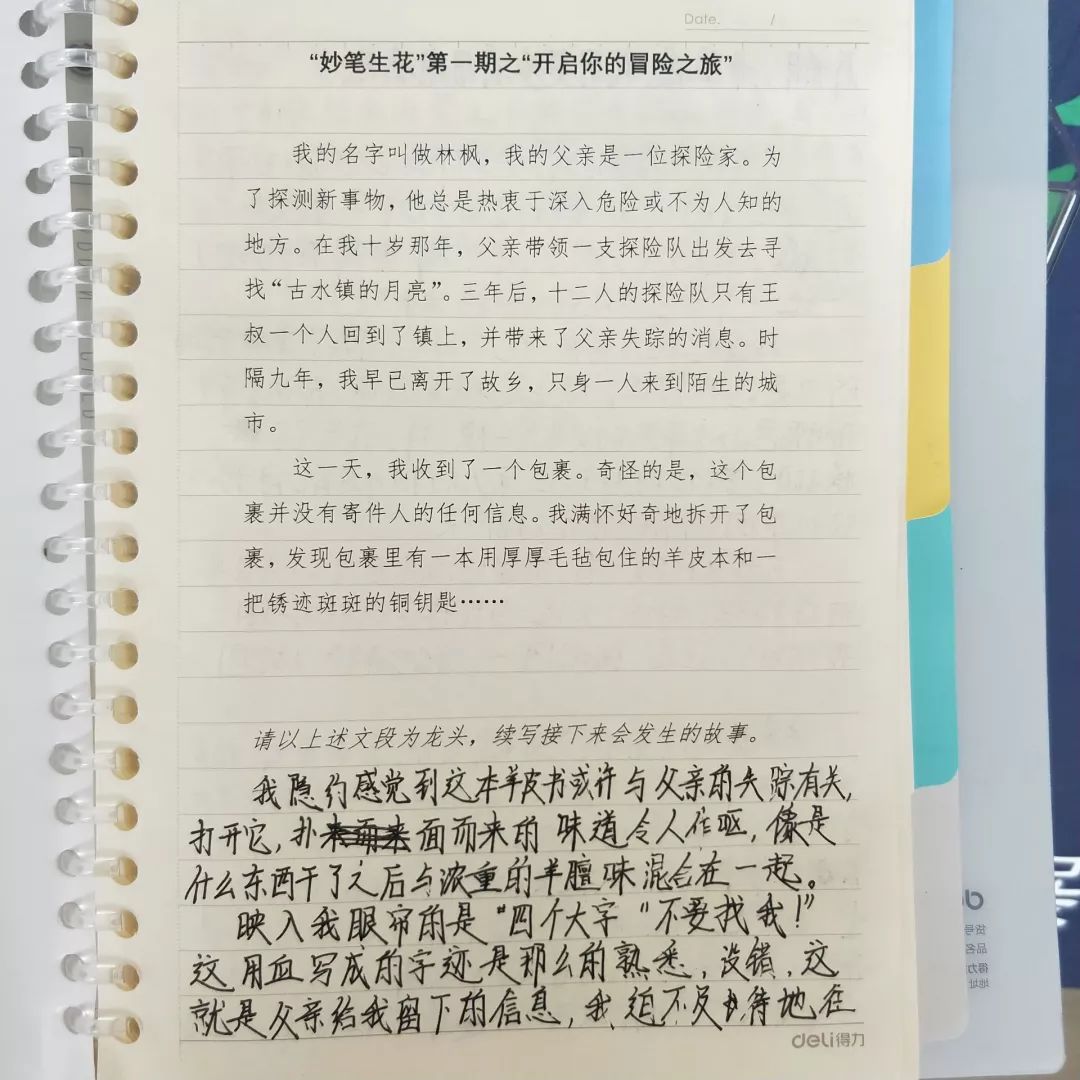 Date. /
“妙笔生花”第一期之“开启你的冒险之旅”
我的名字叫做林枫，我的父亲是一位探险家。为
了探测新事物，他总是热衷于深入危险或不为人知的
地方。在我十岁那年，父亲带领一支探险队出发去寻
找“古水镇的月亮”。三年后，十二人的探险队只有王
叔一个人回到了镇上，并带来了父亲失踪的消息。时
隔九年，我早已离开了故乡，只身一人来到陌生的城
市。
这一天，我收到了一个包裹。奇怪的是，这个包
裹并没有寄件人的任何信息。我满怀好奇地拆开了包
裹，发现包裹里有一本用厚厚毛毡包住的羊皮本和一
把锈迹斑斑的铜钥匙……
请以上述文段为龙头，续写接下来会发生的故事。
我隐约感觉到这本羊皮书或许与父亲的失踪有关，
打开它，扑面而来的味道令人作呕，像是
什么东西干了之后与浓重的羊膻味混合在一起。
映入我眼帘的是“四个大字“不要找我！”
这用血写成的字迹是那么的熟悉，没错，这
就是父亲给我留下的信息，我迫不及待地往
deli得力
deli
货号
品名
得力
地址